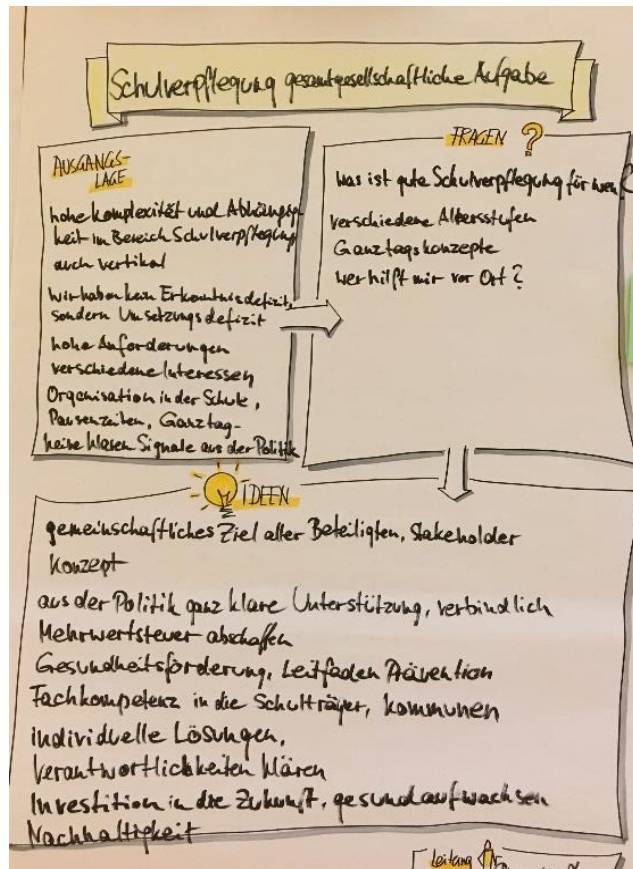 Schulverpflegung gesamtgesellschaftliche Aufgabe
AUSGANGS-
LAGE
hohe Komplexität und Abhängig-
keit im Bereich Schulverpflegung
auch vertikal
Wir haben kein Erkenntnisdefizit,
sondern Umsetzungsdefizit
hohe Anforderungen
verschiedene Interessen
Organisation in der Schule,
Pausenzeiten, Ganztag-
keine klaren Signale aus der Politik
FRAGEN ?
Was ist gute Schulverpflegung für wen?
verschiedene Altersstufen
Ganztagskonzepte
wer hilft mir vor Ort?
IDEEN
gemeinschaftliches Ziel aller Beteiligten, Stakeholder
Konzept
aus der Politik ganz klare Unterstützung, verbindlich
Mehrwertsteuer abschaffen
Gesundheitsförderung, Leitfaden Prävention
Fachkompetenz in die Schulträger, Kommunen
individuelle Lösungen,
Verantwortlichkeiten klären
Investition in die Zukunft, gesund aufwachsen
Nachhaltigkeit
Leitung